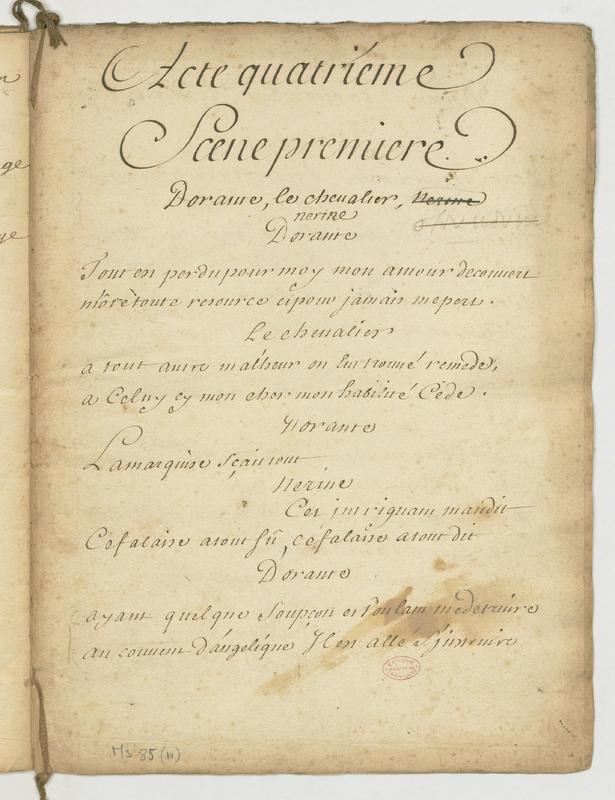 Acte quatriéme
Scene premiere
Dorante, le chevalier, nerine
nerine
Dorante
Tout est perdu pour moy mon amour decouvert
m'ôte toute resource et pour jamais me pert.
Le chevalier
a tout autre malheur on eut trouvé remede,
a Celuy cy mon cher mon habilité Céde.
Dorante
La marquise sçait tout
Nerine
Cet intriguant maudit
Cefalaise a tout sû, cefalaise a tout dit
Dorante
ayant quelque Soupçon et voulant me detruire
au couvent d'angelique Il est allé s'instruire
Ms 85 (IV)